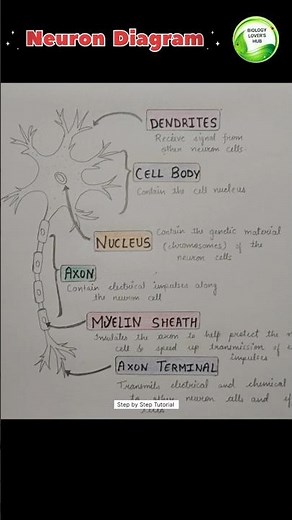 Neuron Diagram
BIOLOGY
LOVER'S
HUB
DENDRITES
Receive signal from
other neuron cells
CELL BODY
Contain the cell nucleus
NUCLEUS
Contain the genetic material
(chromosomes) of the
neuron cells
AXON
Contain electrical impulses along
the neuron cell
MYELIN SHEATH
Insulates the axon to help protect the
cell & speed up transmission of
impulses
AXON TERMINAL
Transmits electrical and chemical
to other neuron cells and
cells
Step by Step Tutorial